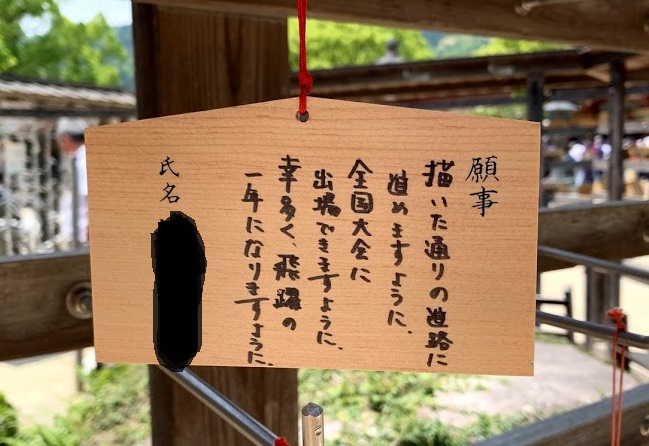 願事
描いた通りの進路に
進めますように、
全国大会に
出場できますように、
幸多く、飛躍の
一年になりますように、
氏名